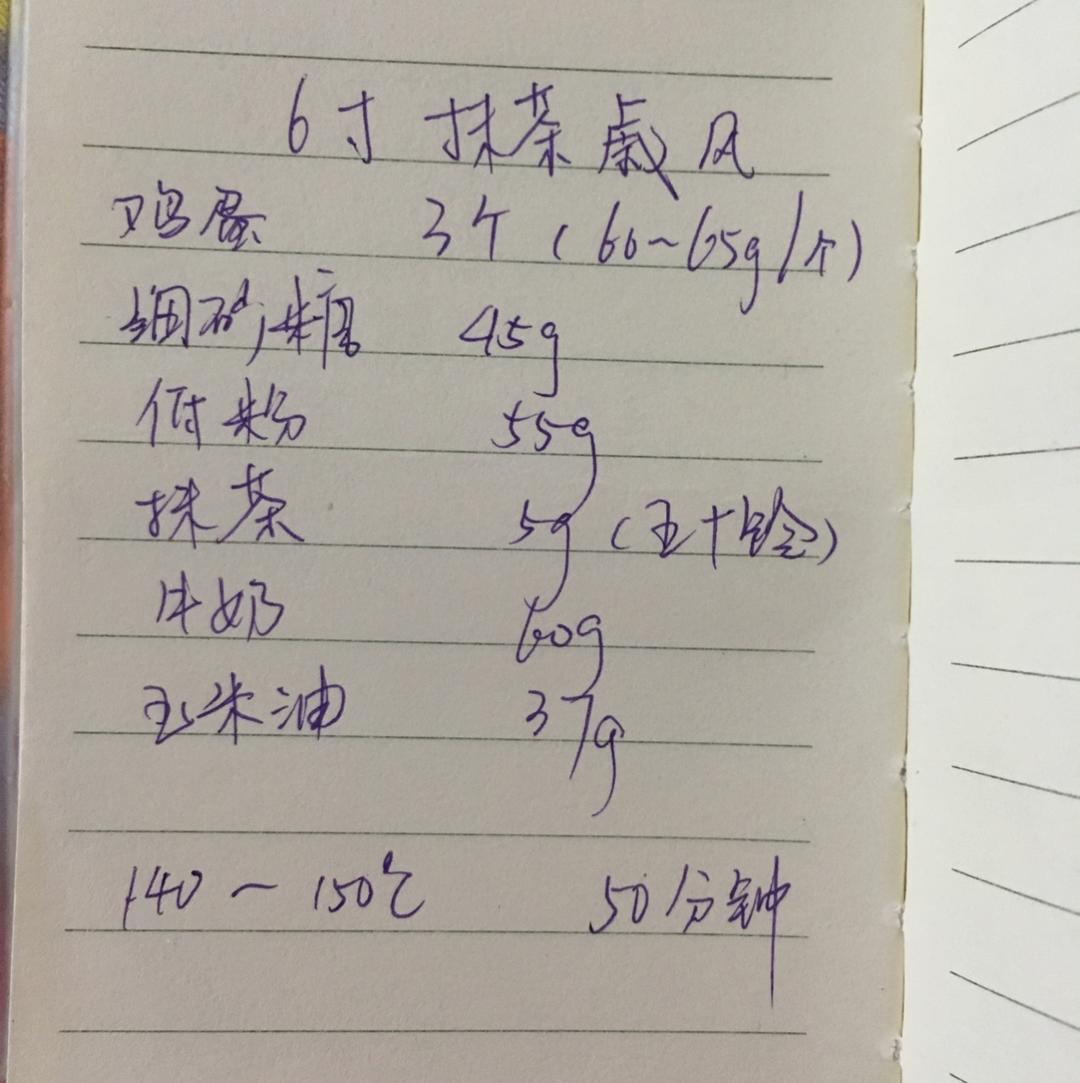 6寸 抹茶戚风
鸡蛋 3个 (60~65g/个)
细砂糖 45g
低粉 55g
抹茶 5g (五十铃)
牛奶 60g
玉米油 37g
140~150℃ 50分钟